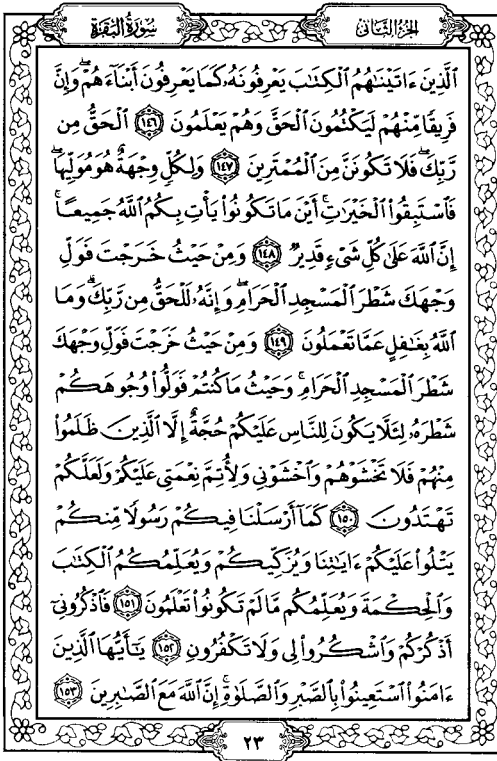 سُورَةُ البَقَرَةِ
الجُزءُ الثَّانِي
ٱلَّذِينَ ءَاتَيْنَٰهُمُ ٱلْكِتَٰبَ يَعْرِفُونَهُۥ كَمَا يَعْرِفُونَ أَبْنَآءَهُمْ ۖ وَإِنَّ
فَرِيقًا مِّنْهُمْ لَيَكْتُمُونَ ٱلْحَقَّ وَهُمْ يَعْلَمُونَ ١٤٦ ٱلْحَقُّ مِن
رَّبِّكَ ۖ فَلَا تَكُونَنَّ مِنَ ٱلْمُمْتَرِينَ ١٤٧ وَلِكُلٍّ وِجْهَةٌ هُوَ مُوَلِّيهَا ۖ
فَٱسْتَبِقُوا۟ ٱلْخَيْرَٰتِ ۚ أَيْنَ مَا تَكُونُوا۟ يَأْتِ بِكُمُ ٱللَّهُ جَمِيعًا ۚ
إِنَّ ٱللَّهَ عَلَىٰ كُلِّ شَىْءٍ قَدِيرٌ ١٤٨ وَمِنْ حَيْثُ خَرَجْتَ فَوَلِّ
وَجْهَكَ شَطْرَ ٱلْمَسْجِدِ ٱلْحَرَامِ ۖ وَإِنَّهُۥ لَلْحَقُّ مِن رَّبِّكَ ۗ وَمَا
ٱللَّهُ بِغَٰفِلٍ عَمَّا تَعْمَلُونَ ١٤٩ وَمِنْ حَيْثُ خَرَجْتَ فَوَلِّ وَجْهَكَ
شَطْرَ ٱلْمَسْجِدِ ٱلْحَرَامِ ۚ وَحَيْثُ مَا كُنتُمْ فَوَلُّوا۟ وُجُوهَكُمْ
شَطْرَهُۥ لِئَلَّا يَكُونَ لِلنَّاسِ عَلَيْكُمْ حُجَّةٌ إِلَّا ٱلَّذِينَ ظَلَمُوا۟
مِنْهُمْ فَلَا تَخْشَوْهُمْ وَٱخْشَوْنِى وَلِأُتِمَّ نِعْمَتِى عَلَيْكُمْ وَلَعَلَّكُمْ
تَهْتَدُونَ ١٥٠ كَمَآ أَرْسَلْنَا فِيكُمْ رَسُولًا مِّنكُمْ
يَتْلُوا۟ عَلَيْكُمْ ءَايَٰتِنَا وَيُزَكِّيكُمْ وَيُعَلِّمُكُمُ ٱلْكِتَٰبَ
وَٱلْحِكْمَةَ وَيُعَلِّمُكُم مَّا لَمْ تَكُونُوا۟ تَعْلَمُونَ ١٥١ فَٱذْكُرُونِىٓ
أَذْكُرْكُمْ وَٱشْكُرُوا۟ لِى وَلَا تَكْفُرُونِ ١٥٢ يَٰٓأَيُّهَا ٱلَّذِينَ
ءَامَنُوا۟ ٱسْتَعِينُوا۟ بِٱلصَّبْرِ وَٱلصَّلَوٰةِ ۚ إِنَّ ٱللَّهَ مَعَ ٱلصَّٰبِرِينَ ١٥٣
٢٣